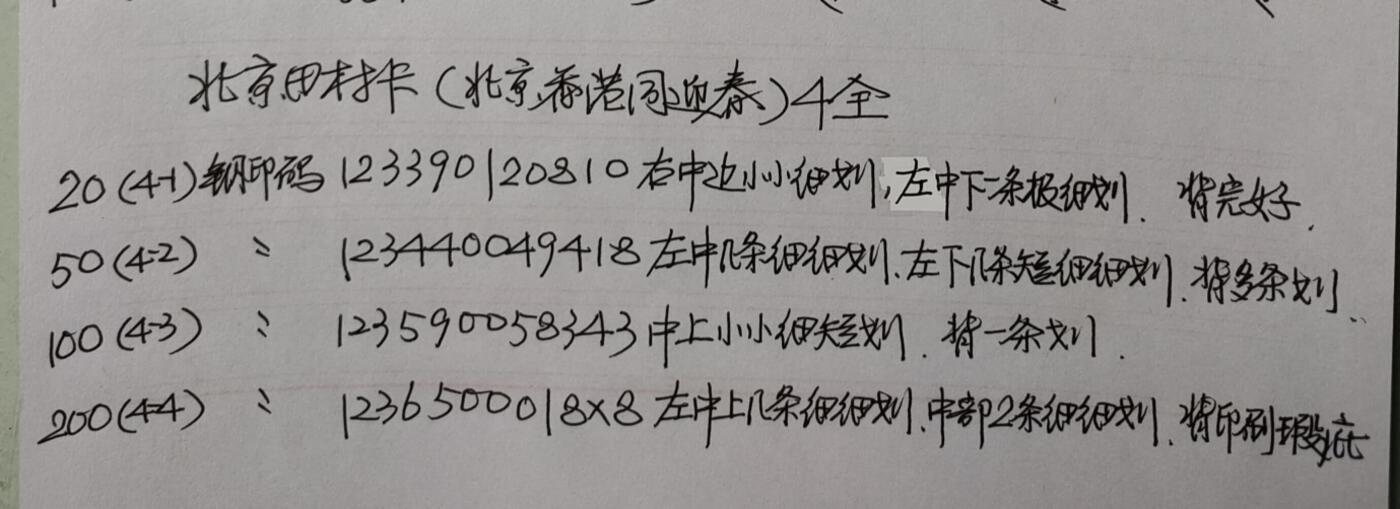 北京田村卡（北京香港同迎春）4全
20（4-1）钢印码 123390120810 右中边小小细划，左中下一条极细划．背完好．
50（4-2） 〃 123440049418 左中几条细细划．左下几条短细细划．背多条划．
100（4-3） 〃 123590058343 中上小小细短划．背一条划．
200（4-4） 〃 1236500018X8 左中上几条细细划．中部2条细细划．背印刷瑕疵